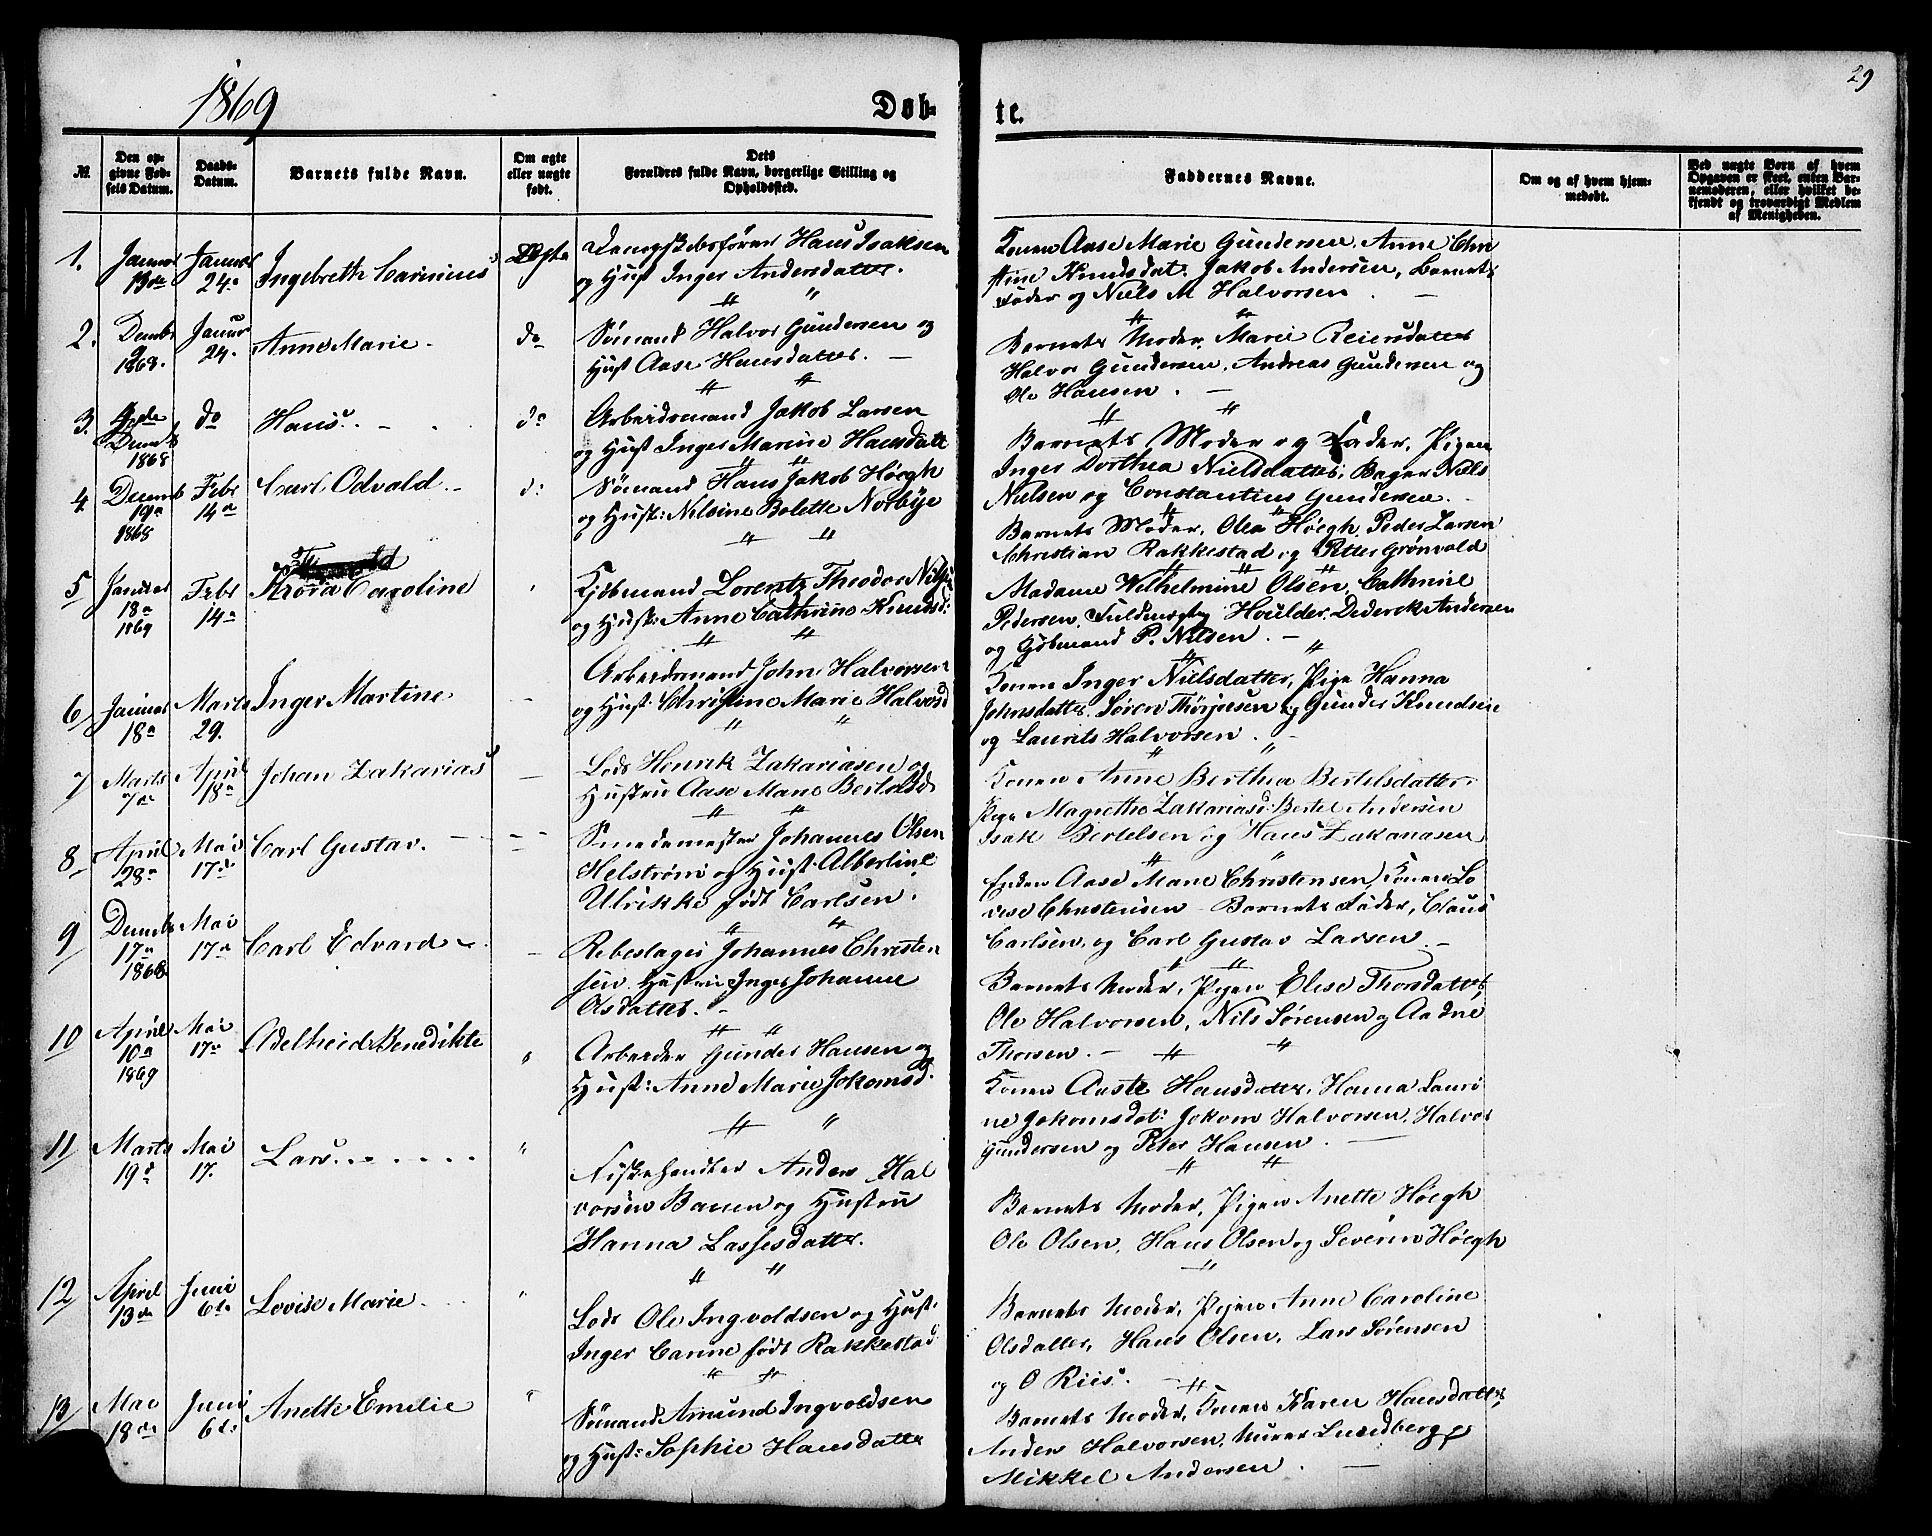 1869
Døb-
te.
29
№
Den op-
givne Fød-
sels Datum.
Daabs-
Datum.
Barnets fulde Navn.
Om ægte
eller uægte
født.
Dets
Forældres fulde Navn, borgerlige Stilling og
Opholdssted.
Faddernes Navne.
Om og af hvem hjem-
medøbt.
Ved uægte Børn af hvem
Opgaven er skeet, enten Bar-
nemoderen, eller hvilket be-
kjendt og troværdigt Medlem
af Menigheden.
1.
Januar
13de
Januar
24.
Ingebreth Carinius
Ægte
Dampskibsfører Hans Isaksen
og Hust Inger Andersdatter.
Konen Aase Marie Gundersen, Anne Chri
stine Knudsdat: Jakob Andersen, Barnets
Fader og Niels M Halvorsen
2.
Decmbr
9
1868.
Januar
24.
Anne Marie
do
Sømand Halvor Gundersen og
Hust Aase Hansdatter.
Barnets Moder, Marie Reiersdatter
Halvor Gundersen, Andreas Gundersen og
Ole Hansen.
3.
Decmb
1868
do
Hans
do
Arbeidsmand Jakob Larsen
og Hust Inger Marine Hansdatt
Barnets Moder og Fader, Pigen
Inger Dorthea Nielsdatter, Bager Niels
Nielsen og Constantius Gundersen.
4
Decemb
19
1868
Febr
14
Carl Odvald
d:
Sømand Hans Jakob Høegh
og Hust: Nilsine Bolette Norbye
Barnets Moder, Olea Høegh, Peder Larsen
Christian Rakkestad og Petter Grønvold
5
Januar
18
1869
Febr
14
Caroline
Kjøbmand Lorentz Theodor Nilsen
og Hust: Anne Cathrine Knudsd:
Madame Wilhelmine Olsen, Cathrine
Pedersen, Houlder, Dederek Andersen
og Kjøbmand P. Nilsen.
6
Januar
18
Marts
29.
Inger Martine
Arbeidsmand John Halvorsen
og Hust: Christine Marie Halvorsd
Konen Inger Nielsdatter, Pige Hanna
Johnsdatter, Søren Thorjusen og Gunder Knudsen
og Laurits Halvorsen.
7
Marts
7
April
18
Johan Zakarias
Lods Henrik Zakariasen og
Hustru Aase Marie Bertelsd
Konen Anne Berthea Bertelsdatter
Pige Magrethe Zakariasd: Bertel Andersen
Isak Bertelsen og Hans Zakariasen
8
April
28
Mai
17
Carl Gustav.
Smedemester Johannes Olsen
Helstrøm og Hust: Albertine
Ulrikke født Carlsen.
Enken Aase Marie Christensen, Konen Lo
vise Christensen Barnets Fader, Claus
Carlsen og Carl Gustav Larsen
9
Decmbr
17
1868
Mai
17
Carl Edvard
Rebeslager Johannes Christen
sen Hustru Inger Johanne
Olsdatter.
Barnets Moder, Pigen Elise Thorsdatter,
Ole Halvorsen, Nils Sørensen og Aadne
Thorsen.
10
April
10
1869
Mai
17
Adelheid Benedikte
Arbeider Gunder Hansen og
Hust: Anne Marie Jokomsd.
Konen Aaste Hansdatter, Hanna Lauri
ne Jokomsdat: Jokom Halvorsen, Halvor
Gundersen og Peter Hansen.
11
Marts
19
Mai
17.
Lars
Fiskehandler Anders Hal
vorsen Bauen og Hustru
Hanna Lassesdatter.
Barnets Moder, Pigen Anette Høegh
Ole Olsen, Hans Olsen og Severin Høegh
12
April
13de
Juni
6te
Lovise Marie.
Lods Ole Ingvoldsen og Hust:
Inger Carine født Rakkestad
Barnets Moder, Pigen Anne Caroline
Olsdatter, Hans Olsen, Lars Sørensen
og O Riis.
13
Mai
18de
Juni
6te
Anette Emelie
Sømand Amund Ingvoldsen
og Hust: Sophie Hansdatter
Barnets Moder, Konen Karen Hansdatter,
Anders Halvorsen, Murer Lundberg og
Mikkel Andersen.